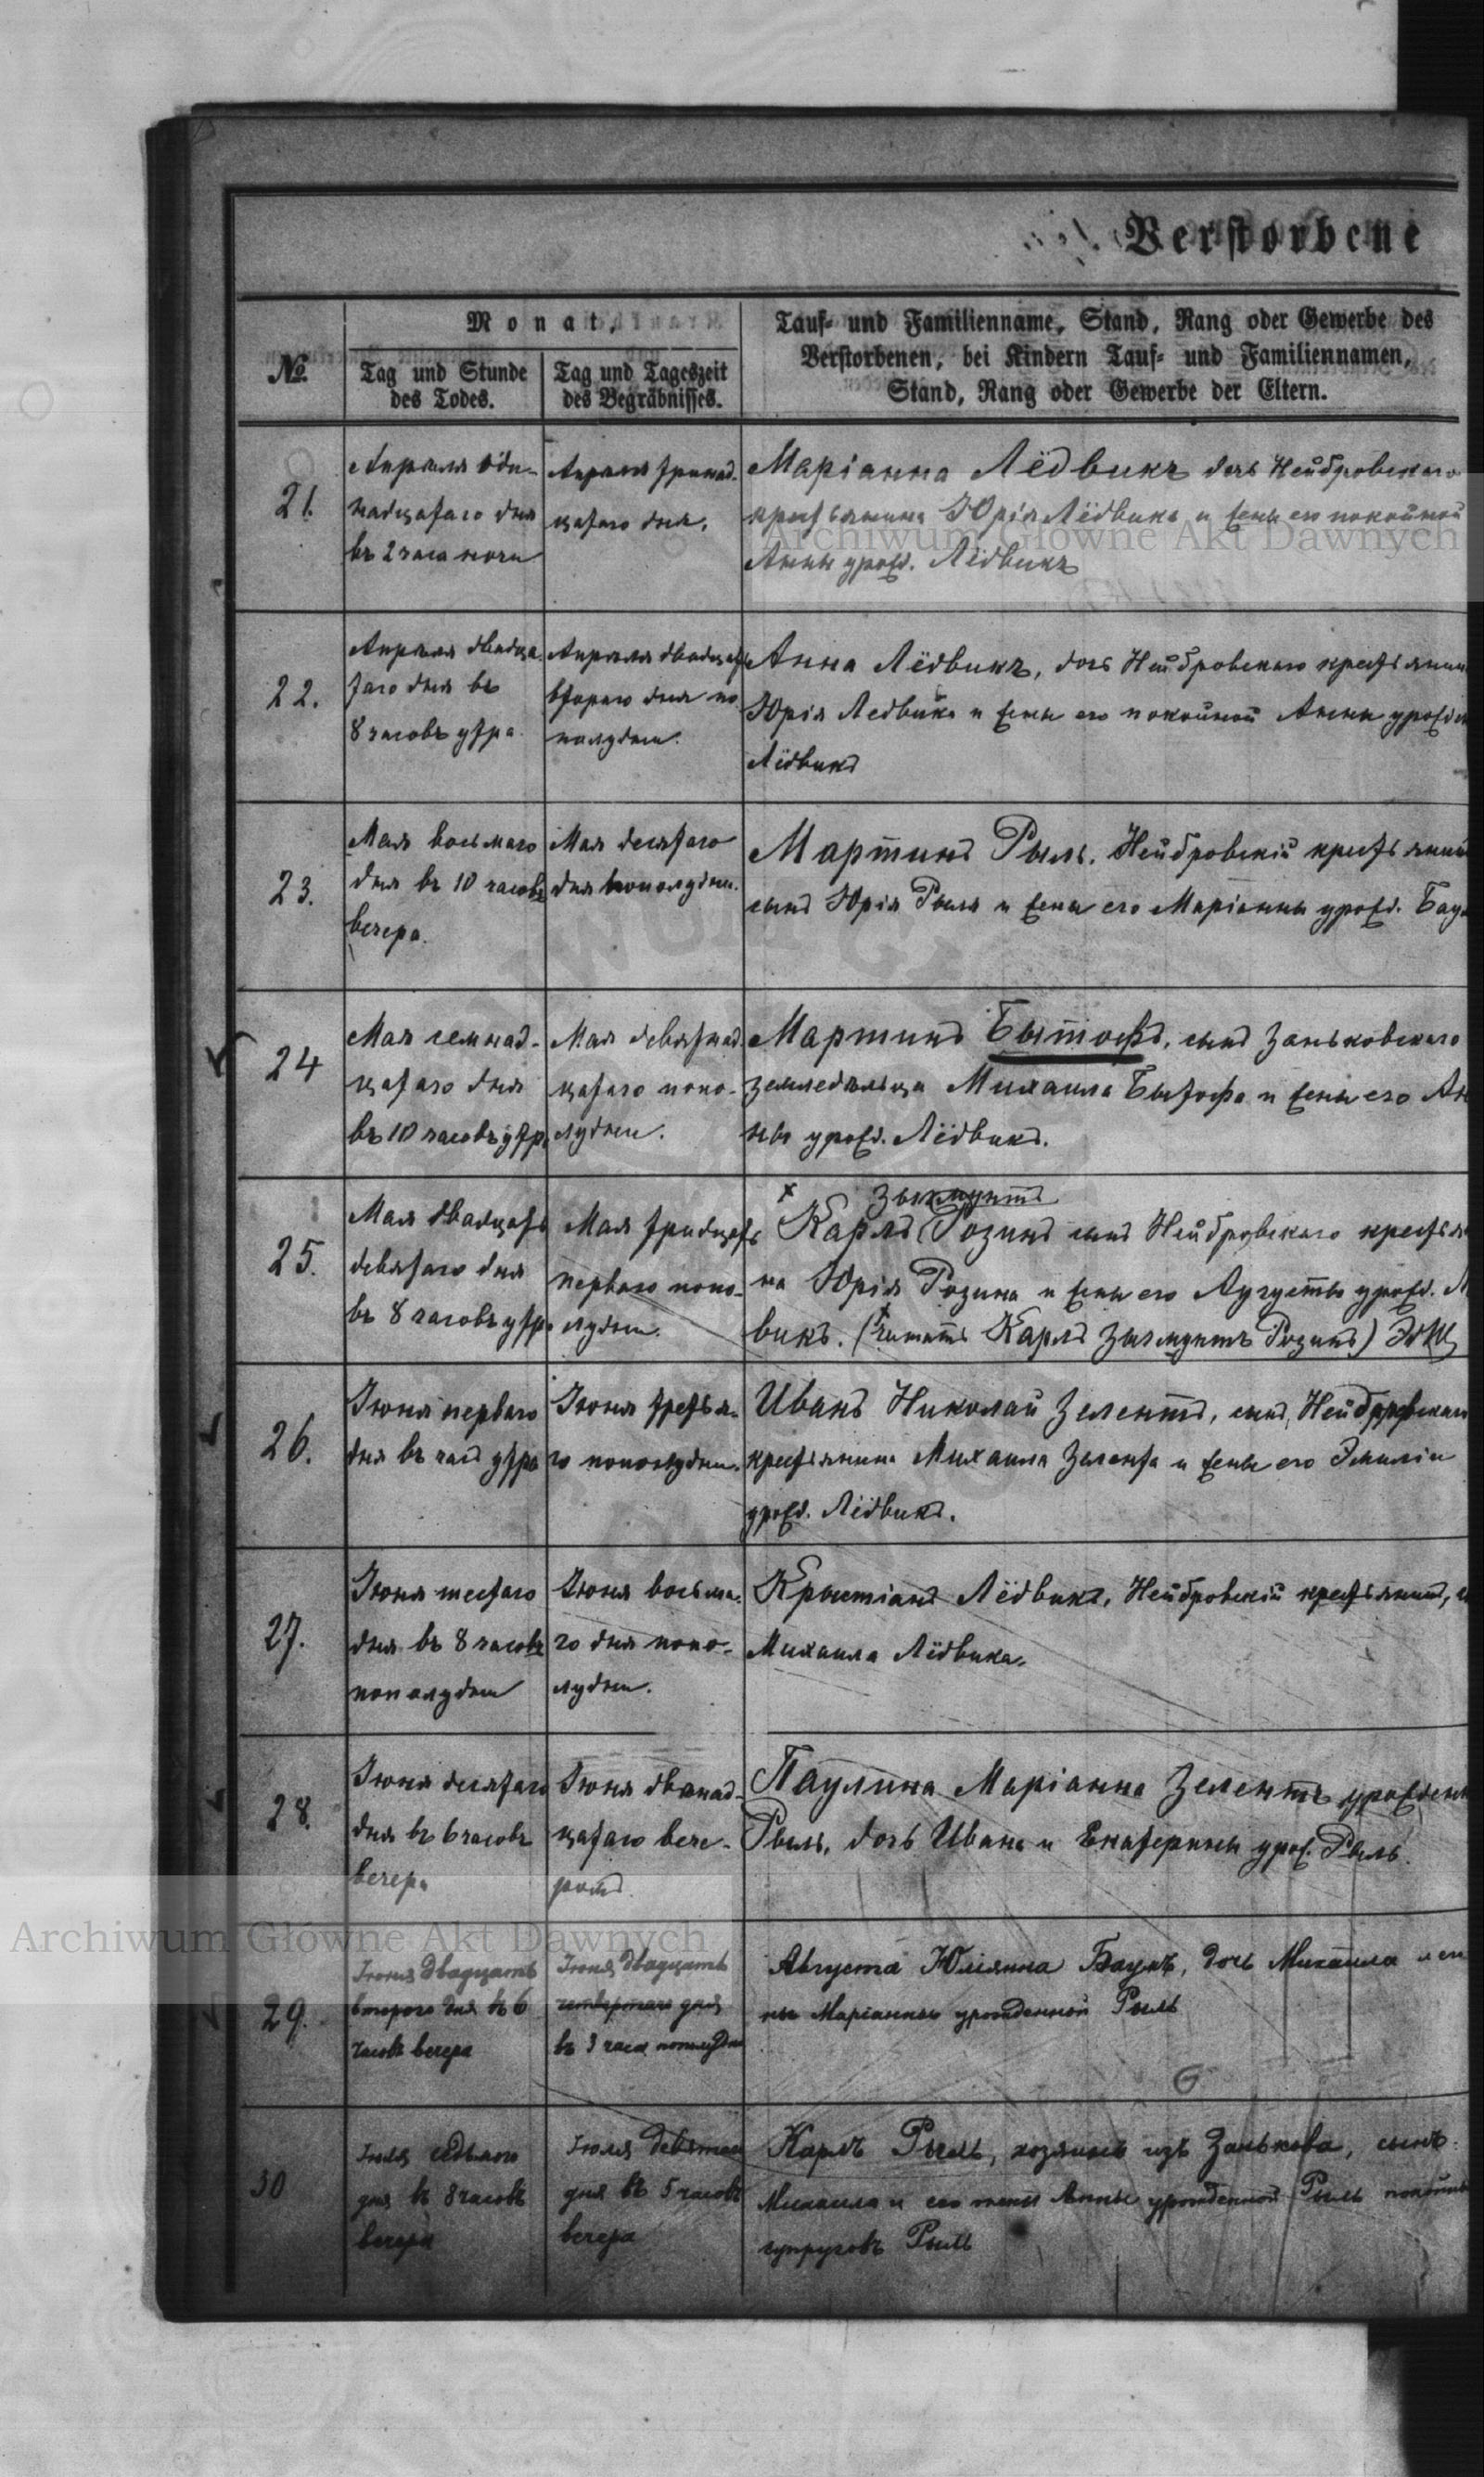 Verstorbene
№
Monat,
Tag und Stunde
des Todes.
Tag und Tageszeit
des Begräbnisses.
Tauf- und Familienname, Stand, Rang oder Gewerbe des
Verstorbenen, bei Kindern Tauf- und Familiennamen,
Stand, Rang oder Gewerbe der Eltern.
21.
Апрѣля оди-
надцатаго дня
въ 2 часа ночи
Апрѣля тринад-
цатаго дня.
Маріанна Лёдвикъ дочь Нейбровскаго
крестьянина Юрія Лёдвика и жены его покойной
Анны урожд. Лёдвикъ
Archiwum Główne Akt Dawnych
22.
Апрѣля двадца-
таго дня въ
8 часовъ утра
Апрѣля двадцать
втораго дня по
полудни.
Анна Лёдвикъ, дочь Нейбровскаго крестьянин
Юрія Ледвика и жены его покойной Анны урожден
Лёдвикъ
23.
Мая восьмаго
дня въ 10 часовъ
вечера.
Мая десятаго
дня пополудни.
Мартинъ Рыль, Нейбровскій крестьянин
сынъ Юрія Рыля и жены его Маріанны урожд. Бау
24
Мая семнад-
цатаго дня
въ 10 часовъ утр.
Мая девятнад
цатаго попо-
лудни.
Мартинъ Бытофъ, сынъ Заньковскаго
земледѣльца Михаила Бытофа и жены его Ан
ны урожд. Лёдвикъ.
25.
Мая двадцать
девятаго дня
въ 8 часовъ утр.
Мая тридцать
перваго попо-
лудни.
х Зыгмунтъ
Карлъ Розинъ сынъ Нейбровскаго крестьян
на Юрія Розина и жены его Аугусты урожд. Л
викъ. (Читать Карлъ Зыгмунтъ Розинъ)
26.
Іюня перваго
дня въ часъ утра
Іюня третья-
го пополудни.
Иванъ Николай Зелентъ, сынъ Нейбровскаго
крестьянина Михаила Зелента и жены его Эмиліи
урожд. Лёдвикъ.
27.
Іюня шестаго
дня въ 8 часовъ
пополудни
Іюня восьма-
го дня попо-
лудни.
Крыстіанъ Лёдвикъ, Нейбровскій крестьянинъ,
Михаила Лёдвика.
28.
Іюня десятаго
дня въ 6 часовъ
вечера
Іюня двѣнад-
цатаго вече-
ромъ.
Паулина Маріанна Зелентъ урожден
Рыль, дочь Ивана и Екатерины урож. Рыль.
Archiwum Główne Akt Dawnych
29.
Іюня двадцать
второго дня въ 6
часовъ вечера
Іюня двадцать
четвертаго дня
въ 3 часа пополудни
Августа Юліянна Баукъ, дочь Михаила и же
ны Маріанны урожденной Рыль
30
Іюля седьмого
дня въ 8 часовъ
вечера
Іюля девятаго
дня въ 5 часовъ
вечера
Карлъ Рыль, хозяинъ изъ Занькова, сынъ
Михаила и его жены Анны урожденной Рыль покойны
супруговъ Рыль